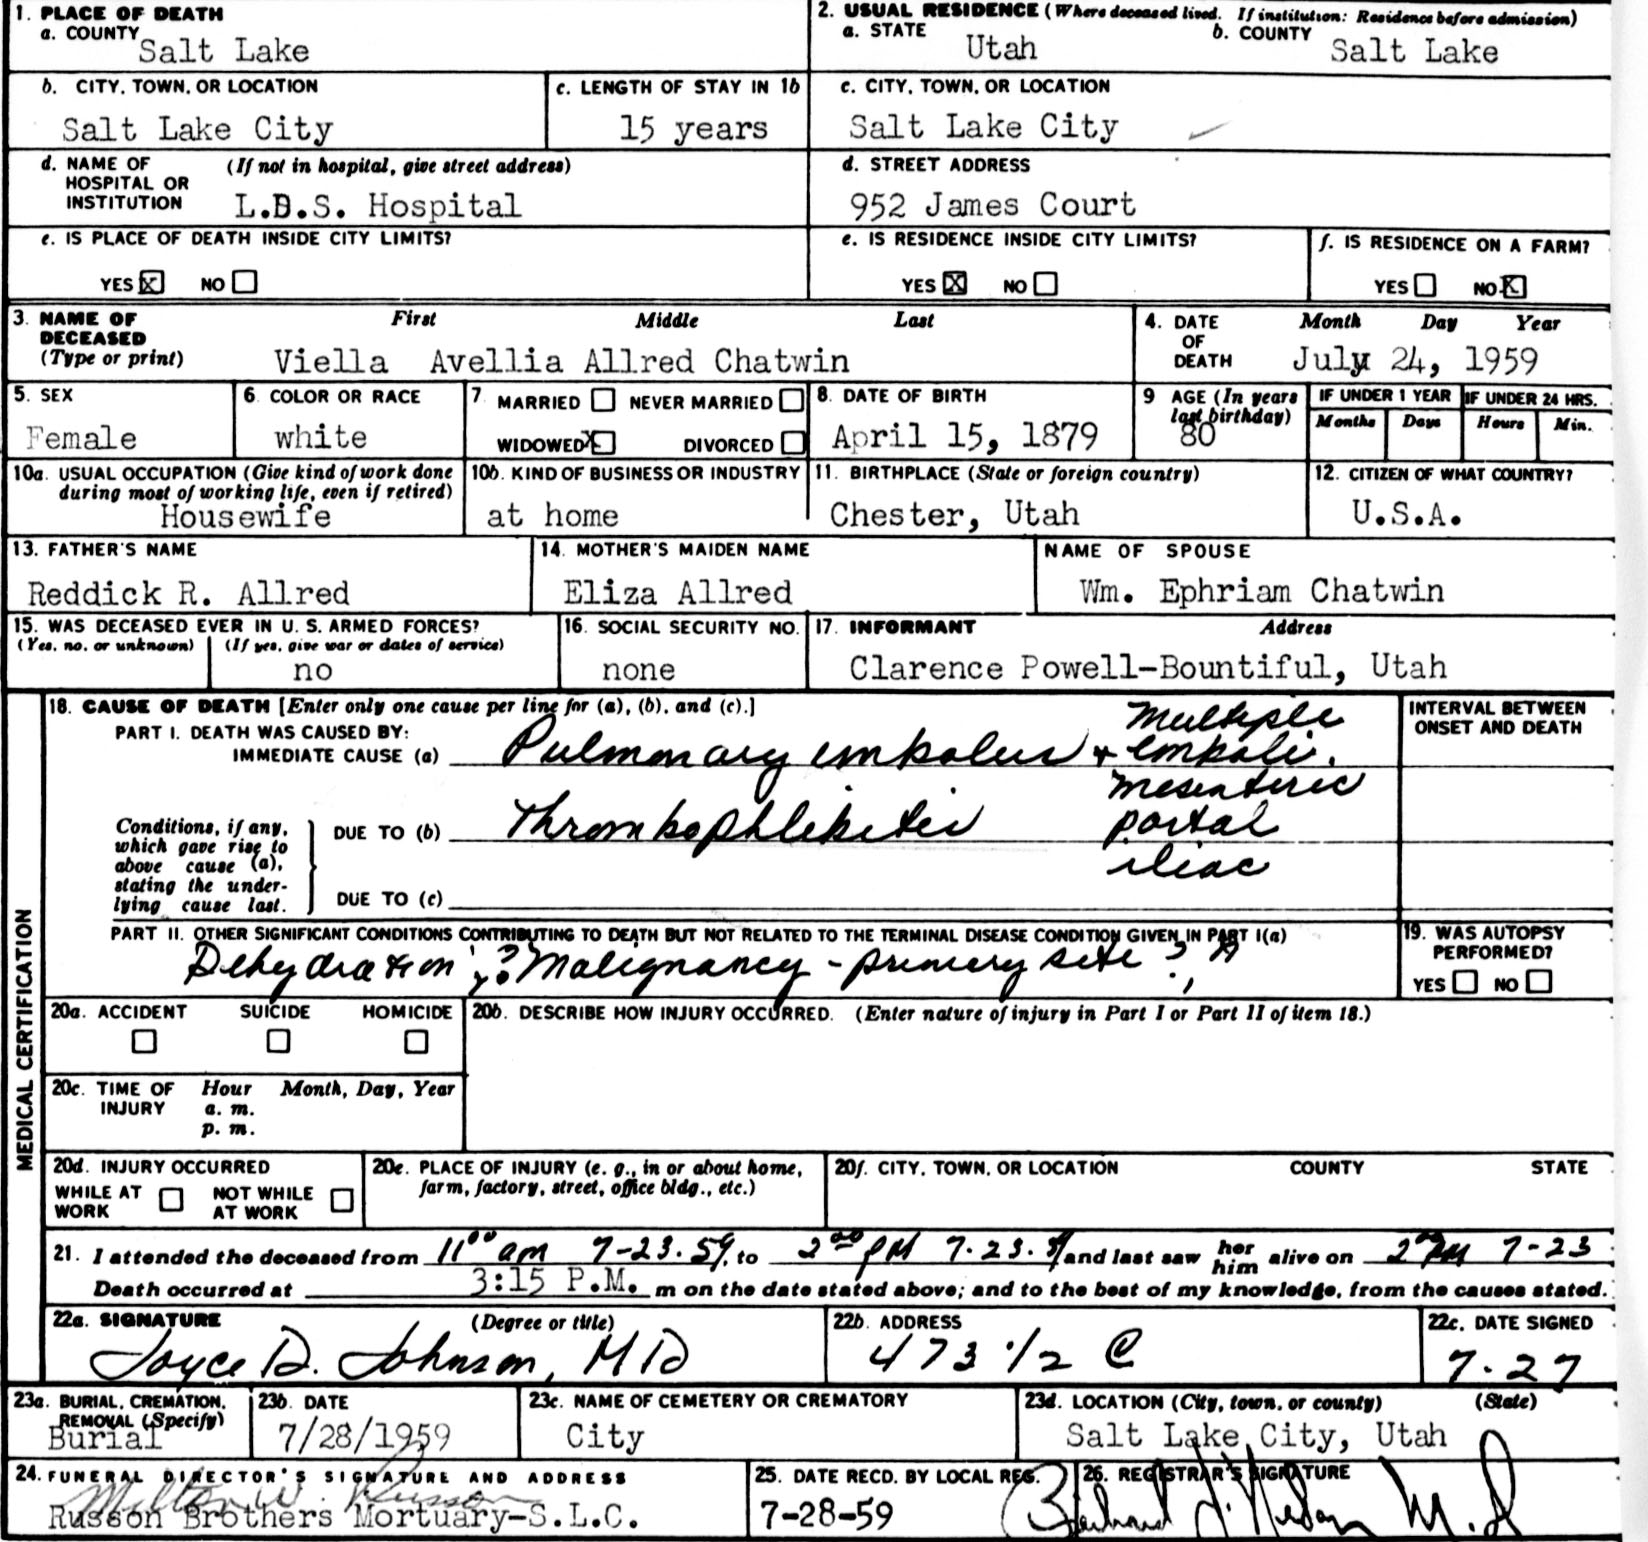 1. PLACE OF DEATH
a. COUNTY
Salt Lake
2. USUAL RESIDENCE (Where deceased lived. If institution: Residence before admission)
a. STATE
Utah
b. COUNTY
Salt Lake
b. CITY, TOWN, OR LOCATION
Salt Lake City
c. LENGTH OF STAY IN 1b
15 years
c. CITY, TOWN, OR LOCATION
Salt Lake City
d. NAME OF (If not in hospital, give street address)
HOSPITAL OR
INSTITUTION L.D.S. Hospital
d. STREET ADDRESS
952 James Court
e. IS PLACE OF DEATH INSIDE CITY LIMITS?
YES X NO
e. IS RESIDENCE INSIDE CITY LIMITS?
YES X NO
f. IS RESIDENCE ON A FARM?
YES NO X
3. NAME OF First Middle Last
DECEASED
(Type or print) Viella Avellia Allred Chatwin
4. DATE Month Day Year
OF
DEATH July 24, 1959
5. SEX
Female
6. COLOR OR RACE
white
7 MARRIED NEVER MARRIED
WIDOWED X DIVORCED
8. DATE OF BIRTH
April 15, 1879
9 AGE (In years
last birthday)
80
IF UNDER 1 YEAR
Months Days
IF UNDER 24 HRS.
Hours Min.
10a. USUAL OCCUPATION (Give kind of work done
during most of working life, even if retired)
Housewife
10b. KIND OF BUSINESS OR INDUSTRY
at home
11. BIRTHPLACE (State or foreign country)
Chester, Utah
12. CITIZEN OF WHAT COUNTRY?
U.S.A.
13. FATHER'S NAME
Reddick R. Allred
14. MOTHER'S MAIDEN NAME
Eliza Allred
NAME OF SPOUSE
Wm. Ephriam Chatwin
15. WAS DECEASED EVER IN U. S. ARMED FORCES?
(Yes, no, or unknown) (If yes, give war or dates of service)
no
16. SOCIAL SECURITY NO.
none
17. INFORMANT Address
Clarence Powell-Bountiful, Utah
MEDICAL CERTIFICATION
18. CAUSE OF DEATH [Enter only one cause per line for (a), (b), and (c).]
PART I. DEATH WAS CAUSED BY:
IMMEDIATE CAUSE (a) Pulmonary embolus + Multiple
emboli.
mesenteric
portal
iliac
Conditions, if any,
which gave rise to
above cause (a),
stating the under-
lying cause last.
DUE TO (b) Thrombophlebitis
DUE TO (c)
INTERVAL BETWEEN
ONSET AND DEATH
PART II. OTHER SIGNIFICANT CONDITIONS CONTRIBUTING TO DEATH BUT NOT RELATED TO THE TERMINAL DISEASE CONDITION GIVEN IN PART I(a)
Dehydration; ? Malignancy - primary site ?
19. WAS AUTOPSY
PERFORMED?
YES NO
20a. ACCIDENT SUICIDE HOMICIDE
20b. DESCRIBE HOW INJURY OCCURRED. (Enter nature of injury in Part I or Part II of item 18.)
20c. TIME OF Hour Month, Day, Year
INJURY a. m.
p. m.
20d. INJURY OCCURRED
WHILE AT NOT WHILE
WORK AT WORK
20e. PLACE OF INJURY (e. g., in or about home,
farm, factory, street, office bldg., etc.)
20f. CITY, TOWN, OR LOCATION COUNTY STATE
21. I attended the deceased from 11 00 am 7-23-59, to 2 00 PM 7-23-59 and last saw her him alive on 2 00 PM 7-23
Death occurred at 3:15 P.M. m on the date stated above; and to the best of my knowledge, from the causes stated.
22a. SIGNATURE (Degree or title)
Joyce D. Johnson, MD
22b. ADDRESS
473 1/2 C
22c. DATE SIGNED
7-27
23a. BURIAL, CREMATION,
REMOVAL (Specify)
Burial
23b. DATE
7/28/1959
23c. NAME OF CEMETERY OR CREMATORY
City
23d. LOCATION (City, town, or county) (State)
Salt Lake City, Utah
24. FUNERAL DIRECTOR'S SIGNATURE AND ADDRESS
Milton W. Russon
Russon Brothers Mortuary-S.L.C.
25. DATE RECD. BY LOCAL REG.
7-28-59
26. REGISTRAR'S SIGNATURE
M.D.